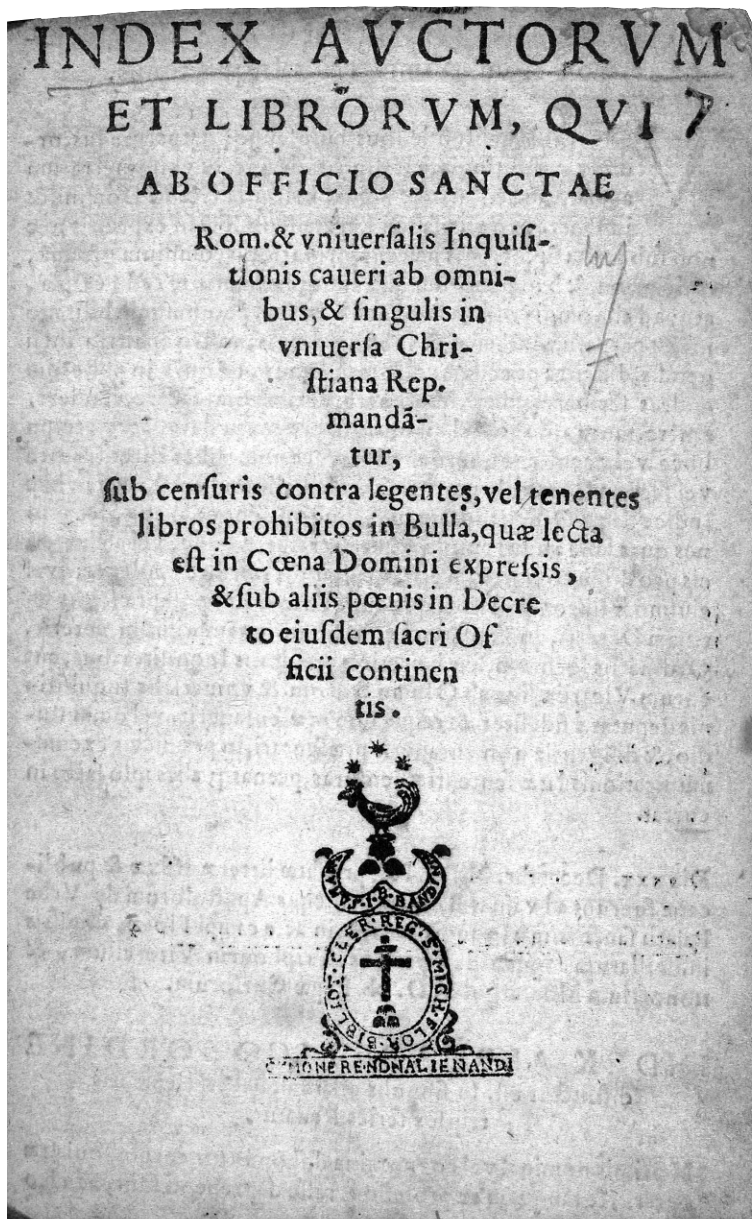 INDEX AVCTORVM
ET LIBRORVM, QVI 7
AB OFFICIO SANCTAE
Rom. & vniuerſalis Inquiſi-
tionis caueri ab omni-
bus, & ſingulis in
vniuerſa Chri-
ſtiana Rep.
mandā-
tur,
ſub cenſuris contra legentes, vel tenentes
libros prohibitos in Bulla, quæ lecta
eſt in Cœna Domini expreſsis,
& ſub aliis pœnis in Decre
to eiuſdem ſacri Of
ficii continen
tis.
I. B. BANDINI
BIBLIOT. CLER. REG. S. MICH. FLOR.